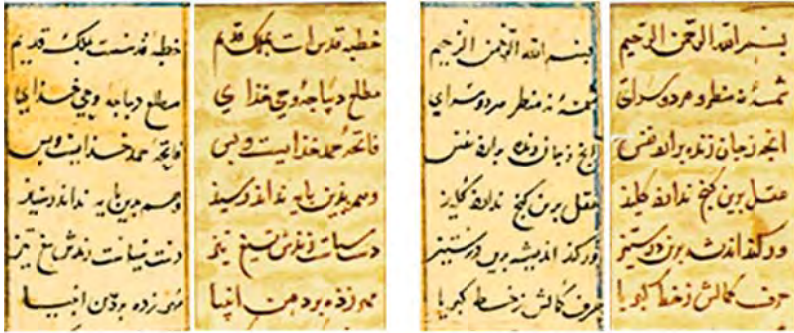 بسم الله الرحمن الرحیم
شمسهٔ نه منظر و مردو سرای
انجه زجان زنده براند نفس
عقل برین کنج نداند کلید
ور کند اندیشه برین در ستیز
حرف کمالش زخط کبریا
بسم الله الرحمن الرحیم
شمسهٔ نه منظر مردو سرای
انج زجان زنده براند نفس
عقل برین کنج نداند کلید
ور کند اندیشه برین در ستیز
حرف کمالش زخط کبریا
خطبه قدس است بملک قدیم
مطلع دیباجهٔ وحی خدای
فاتحهٔ حمد خدایست و بس
وهم بذین پایه نداند رسید
دست سیاست زندش تیغ تیز
مهر زده بر دهن انبیا
خطبه قدسست بملک قدیم
مطلع دیباجه وحی خدای
فاتحهٔ حمد خدایست و بس
وهم بدین پایه نداند رسید
دست سیاست زندش تیغ تیز
مهر زده بر دهن انبیا